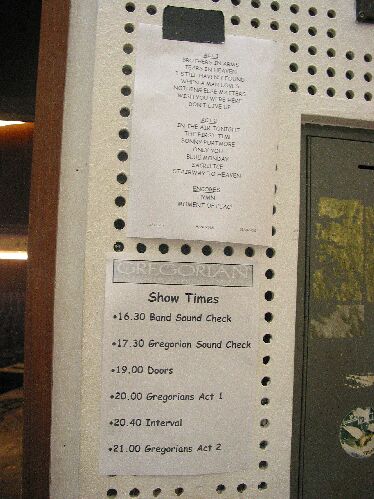 ACT 1
BROTHERS IN ARMS
TEARS IN HEAVEN
I STILL HAVEN'T FOUND
WHEN A MAN LOVES
NOTHING ELSE MATTERS
WISH YOU WERE HERE
DON'T GIVE UP
ACT 2
IN THE AIR TONIGHT
THE FIRST TIME
ONLY YOU
BLUE MONDAY
SACRIFICE
STAIRWAY TO HEAVEN
ENCORES
HYMN
MOMENT OF PEACE
GREGORIAN
Show Times
•16.30 Band Sound Check
•17.30 Gregorian Sound Check
•19.00 Doors
•20.00 Gregorians Act 1
•20.40 Interval
•21.00 Gregorians Act 2